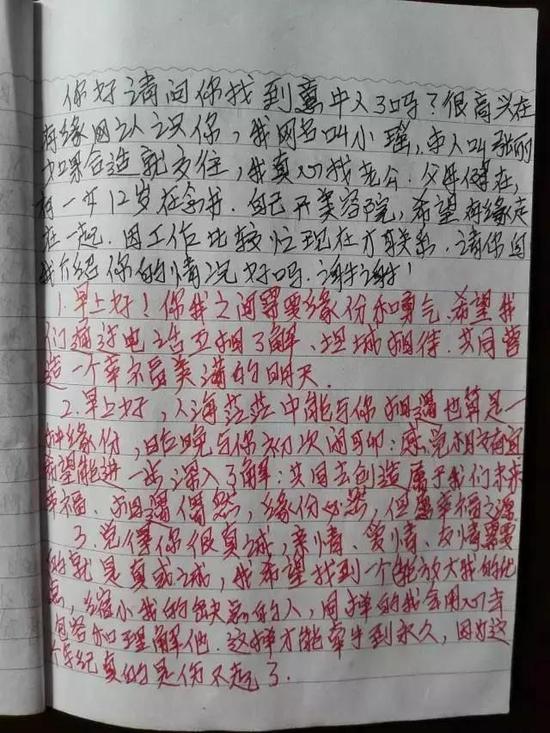 你好请问你找到意中人了吗？很高兴在
有缘网认识你，我网名叫小瑶，本人叫张丽
如果合适就交往，我真心找老公．父母健在，
有一女12岁在念书．自己开美容院，希望有缘走
在一起．因工作比较忙现在才有联系，请你向
我介绍你的情况好吗．谢谢！
1.早上好！你我之间需要缘份和勇气．希望我
们通过电话互相了解、坦诚相待．共同营
造一个幸福美满的明天．
2.早上好，人海茫茫中能与你相遇也算是一
种缘份，昨晚与你初次问聊：感觉相没有
希望能进一步深入了解：共同去创造属于我们未来
幸福、相遇偶然，缘份必然，但是幸福之源
3.觉得你很真诚，亲情、爱情、友情需要
的就是真诚，我希望找到一个能放大我的优
点，缩小我的缺点的人，同样的我会用心去
包容和理解他．这样才能牵手到永久，因为这
个年纪真的是伤不起了．